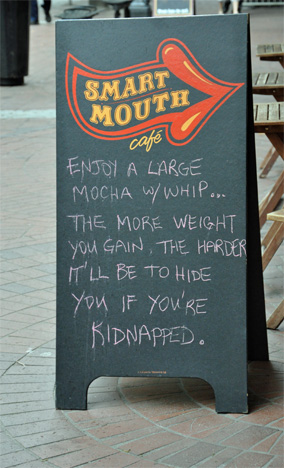 SMART
MOUTH
café
ENJOY A LARGE
MOCHA W/ WHIP...
THE MORE WEIGHT
YOU GAIN, THE HARDER
IT'LL BE TO HIDE
YOU IF YOU'RE
KIDNAPPED.